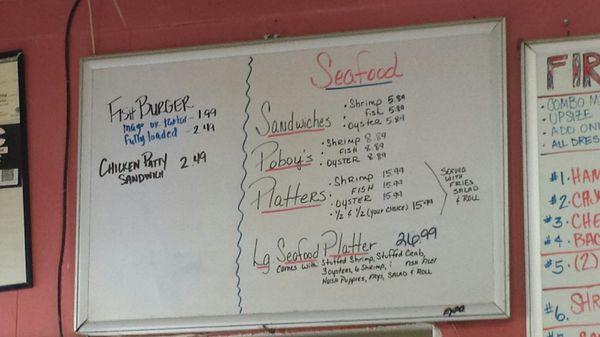 FISH BURGER
Mayo or tartar - 1.99
Fully loaded - 2.49
CHICKEN PATTY 2.49
SANDWICH
Seafood
Sandwiches
· Shrimp 5.89
FISH 5.89
· OYSTER 5.89
Poboy's
· SHRIMP 8.89
FISH 8.89
· OYSTER 8.89
Platters
· SHRIMP 15.99
FISH 15.99
· OYSTER 15.99
· 1/2 & 1/2 (your choice) 15.99
SERVED
WITH
FRIES
SALAD
& ROLL
Lg Seafood Platter 26.99
Comes with Stuffed Shrimp, Stuffed Crab,
3 oysters, 6 Shrimp, FISH FILET
Hush Puppies, FRYS, SALAD & ROLL
EXPO
FIR
· COMBO M
· UPSIZE
· ADD ONI
· ALL DRES
#1. HAM
#2. CAJ
#3. CHE
#4. BAC
#5. (2)
#6. SHR